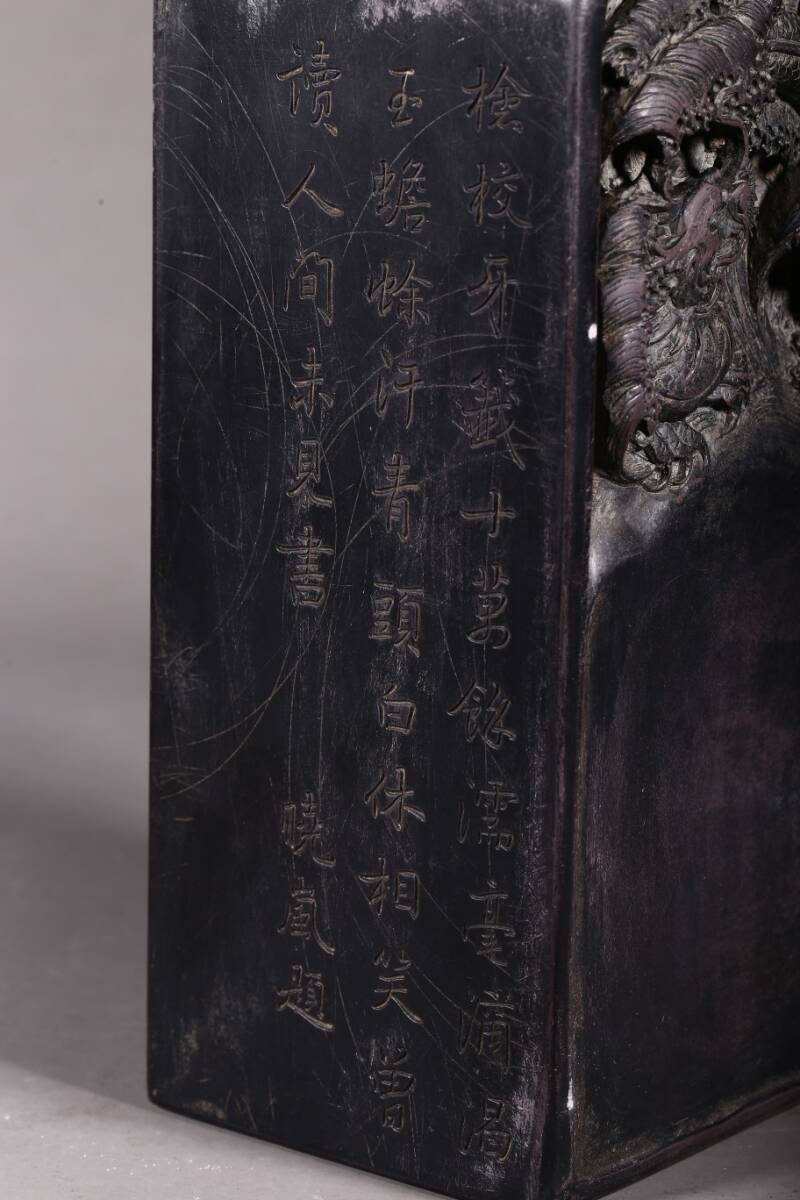 檢校牙籤十萬餘濡毫滴渴
玉蟾蜍汗青頭白休相笑曾
讀人間未見書 曉嵐題